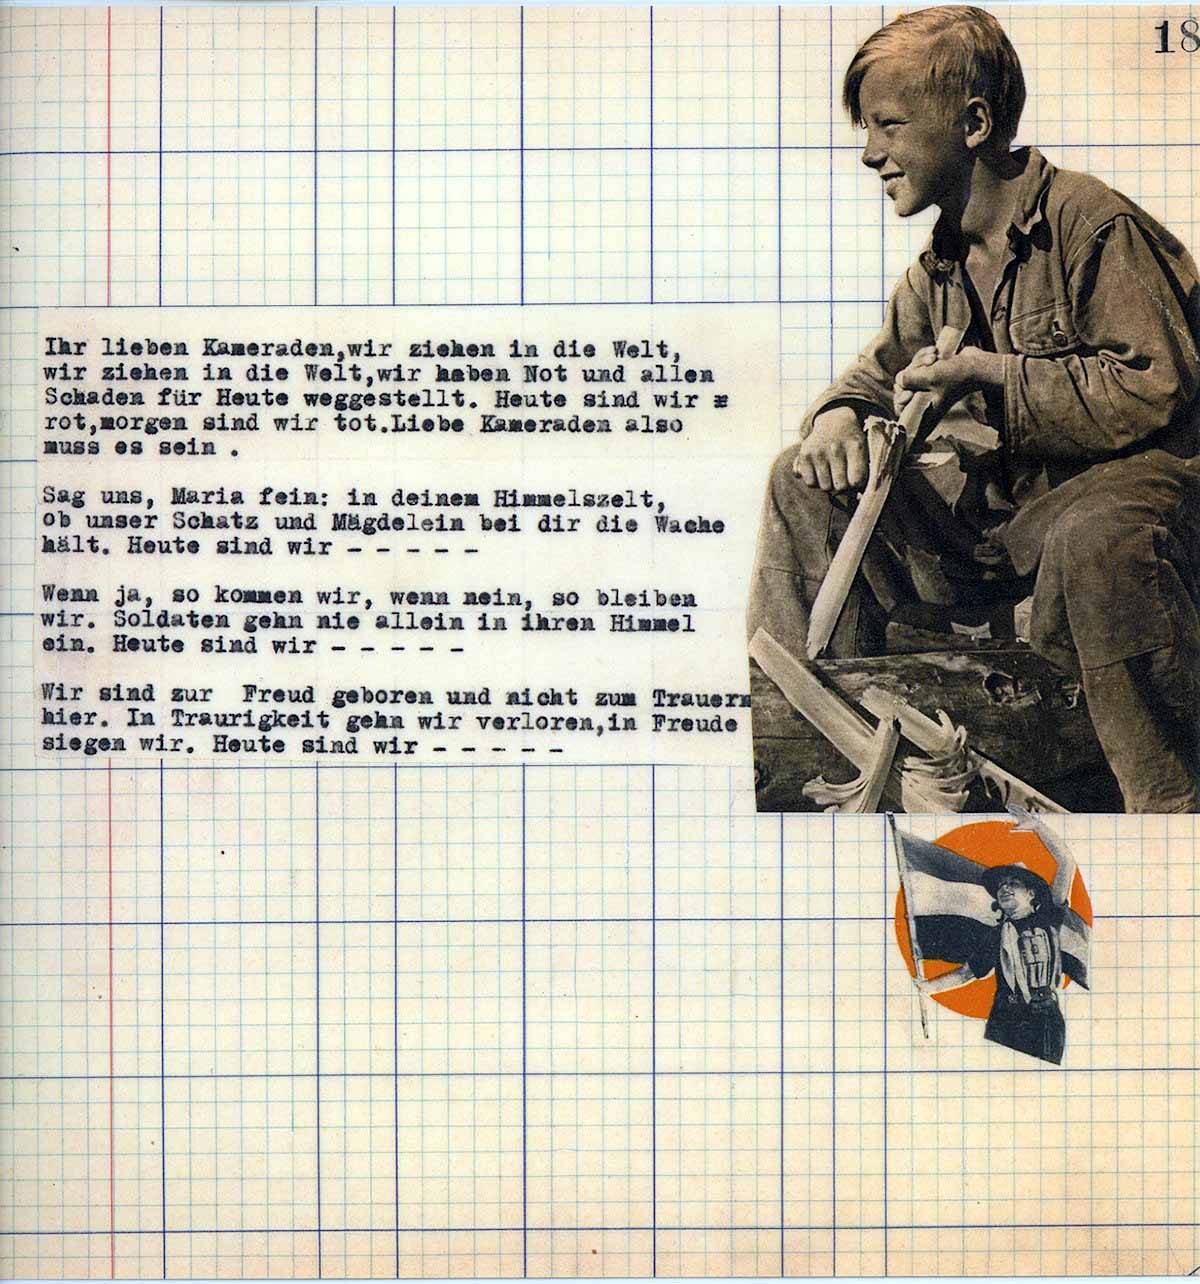 18
Ihr lieben Kameraden,wir ziehen in die Welt,
wir ziehen in die Welt,wir haben Not und allen
Schaden für Heute weggestellt. Heute sind wir
rot,morgen sind wir tot.Liebe Kameraden also
muss es sein .
Sag uns, Maria fein: in deinem Himmelszelt,
ob unser Schatz und Mägdelein bei dir die Wache
hält. Heute sind wir - - - - -
Wenn ja, so kommen wir, wenn nein, so bleiben
wir. Soldaten gehn nie allein in ihren Himmel
ein. Heute sind wir - - - - -
Wir sind zur  Freud geboren und nicht zum Trauern
hier. In Traurigkeit gehn wir verloren,in Freude
siegen wir. Heute sind wir - - - - -